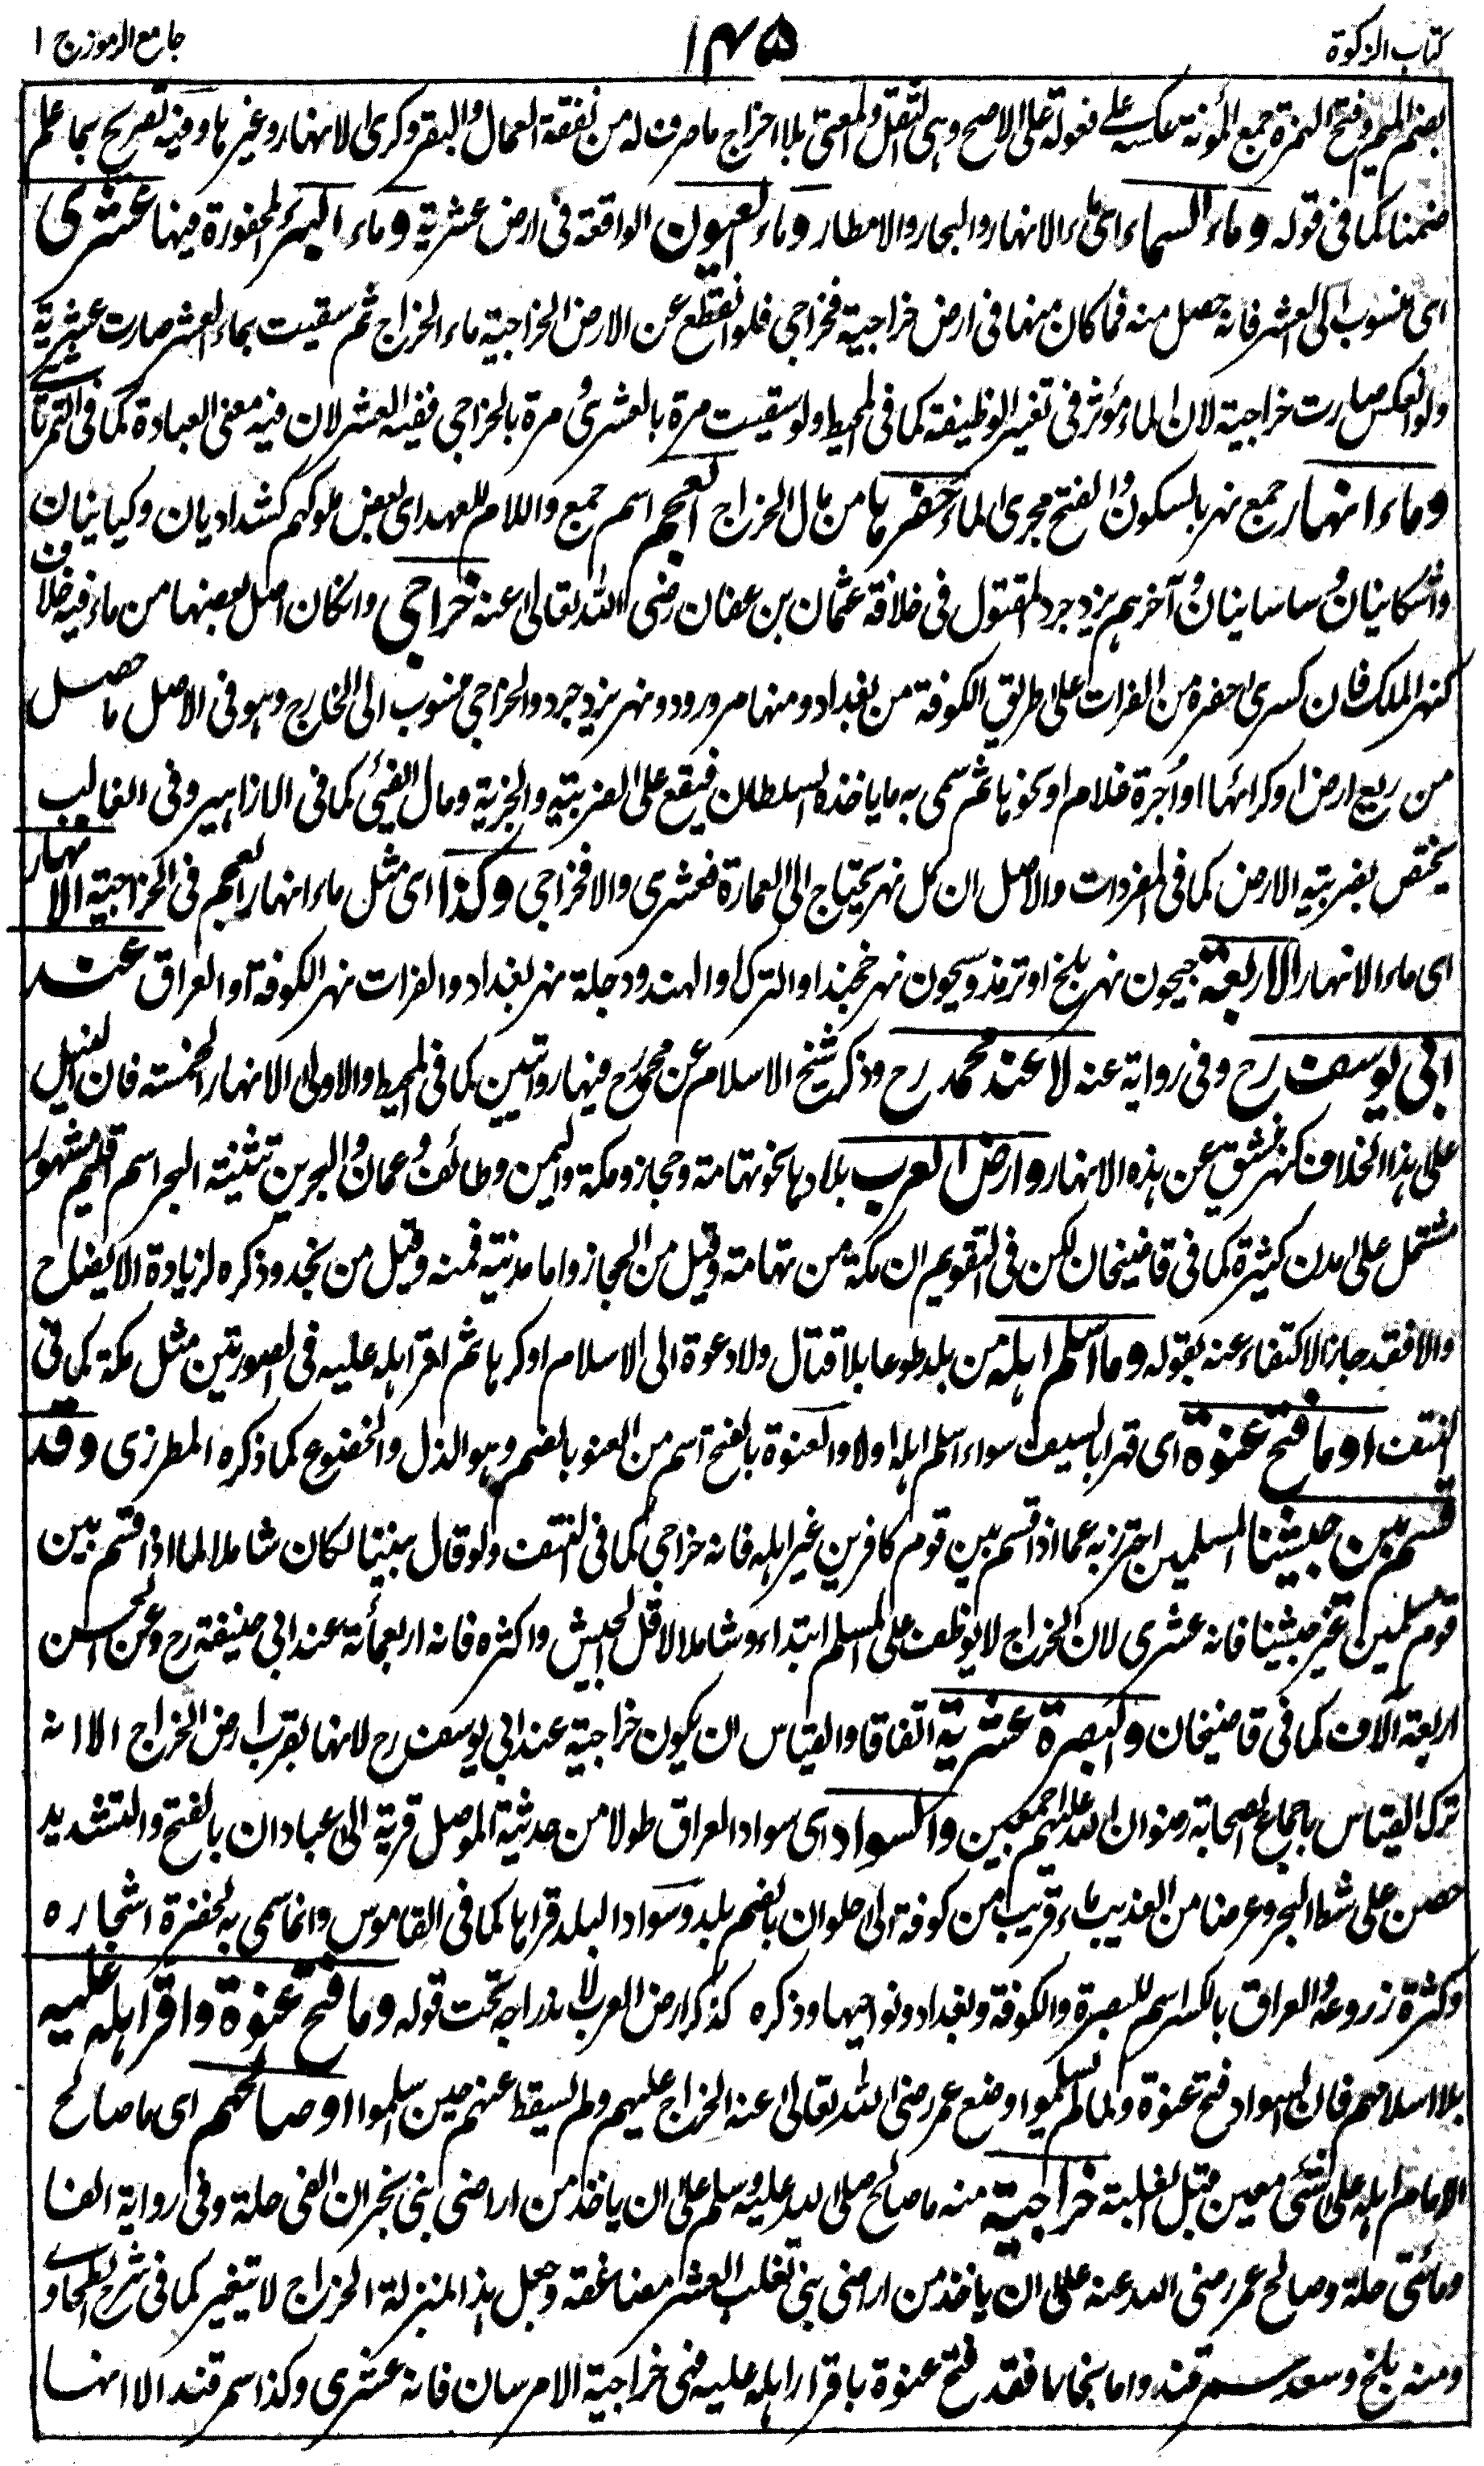 كتاب الزكوة
١٤٥
جامع الرموز ج ١
بضم الميم وفتح الهمزة جمع المؤنة عكسه على فعولة على الاصح وهى الثقل والمعنى بلا اخراج ما صرف له من نفقة العمال والبقر وكرى الانهار وغيرها وفيه تصريح بما علم
ضمنا كما فى قوله وماء السماء اى ماء الانهار والبحار والامطار وماء العيون الواقعة فى ارض عشرية وماء البئر المحفورة فيها عشرى
اى منسوب الى العشر فانه حصل منه فما كان منها فى ارض خراجية فخراجى فلو انقطع عن الارض الخراجية ماء الخراج ثم سقيت بماء العشر صارت عشرية
ولو انعكس صارت خراجية لان الماء مؤثر فى تغير الوظيفة كما فى المحيط ولو سقيت مرة بالعشرى و مرة بالخراجى ففيه العشر لان فيه معنى العبادة كما فى التمرتاشى
وماء انهار جمع نهر بالسكون والفتح مجرى الماء حفرها من مال الخراج العجم اسم جمع واللام للعهد اى بعض ملوكهم كشداديان وكيانيان
واشكانيان وساسانيان وآخرهم يزدجرد المقتول فى خلافة عثمان بن عفان رضى الله تعالى عنه خراجى وان كان اصل بعضها من ماء فيه خلاف
كنهر الملك فان كسرى حفره من الفرات على طريق الكوفة من بغداد ومنها مرورود ونهر يزدجرد والخراجى منسوب الى الخارج وهو فى الاصل ما حصل
من ريع ارض او كرائها او اجرة غلام او نحوها ثم سمى به ما ياخذه السلطان فيقع على الضريبة والجزية ومال الفئى كما فى الازاهير وفى الغالب
يختص بضريبة الارض كما فى المفردات والاصل ان كل نهر يحتاج الى العمارة فعشرى والا فخراجى وكذا اى مثل ماء انهار العجم فى الخراجية الانهار
اى ماء الانهار الاربعة جيحون نهر بلخ او ترمذ وسيحون نهر خجند او الترك او الهند ودجلة نهر بغداد والفرات نهر الكوفة او العراق عند
ابى يوسف رح وفى رواية عنه لا عند محمد رح وذكر شيخ الاسلام عن محمد رح فيها روايتين كما فى المحيط والاولى الانهار الخمسة فان النيل
على هذا الخلاف كنهر دمشق عن هذه الانهار وارض العرب بلادها نحو تهامة وحجاز ومكة واليمن وطائف وعمان والبحرين تثنية البحر اسم اقليم مشهور
مشتمل على مدن كثيرة كما فى قاضيخان لكن فى التقويم ان مكة من تهامة وقيل من الحجاز واما مدينة فمنه وقيل من نجد وذكره لزيادة الايضاح
والا فقد جاز الاكتفاء عنه بقوله وما اسلم اهله من بلد طوعا بلا قتال ولا دعوة الى الاسلام او كرها ثم اقر اهله عليه فى الصورتين مثل مكة كما فى
النتف او ما فتح عنوة اى قهرا بالسيف سواء اسلم اهله اولا والعنوة بالفتح اسم من العنو بالضم وهو الذل والخضوع كما ذكره المطرزى وقد
قسم بين جيشنا المسلمين احترز به عما اذا قسم بين قوم كافرين غير اهله فانه خراجى كما فى النتف ولو قال بيننا لكان شاملا لما اذا قسم بين
قوم مسلمين غير جيشنا فانه عشرى لان الخراج لا يوظف على المسلم ابتداء وشاملا لاقل الجيش واكثره فانه اربعمائة عند ابى حنيفة رح وعن الحسن
اربعة آلاف كما فى قاضيخان والبصرة عشرية اتفاقا والقياس ان يكون خراجية عند ابى يوسف رح لانها بقرب ارض الخراج الا انه
ترك القياس باجماع الصحابة رضوان الله عليهم اجمعين والسواد اى سواد العراق طولا من حديثة الموصل قرية الى عبادان بالفتح والتشديد
حصن على شط البحر وعرضا من العذيب ماء قريب من كوفة الى حلوان بالضم بلد وسواد البلد قراها كما فى القاموس وانما سمى به لخضرة اشجاره
وكثرة زروعه والعراق بالكسر اسم للبصرة والكوفة وبغداد ونواحيها وذكره كذكر ارض العرب لاندراجه تحت قوله وما فتح عنوة واقر اهله عليه
بلا اسلامهم فان السواد فتح عنوة ولما لم يسلموا وضع عمر رضى الله تعالى عنه الخراج عليهم ولم يسقط عنهم حين سلموا او صالحهم اى ما صالح
الامام اهله على شئى معين قبل الغلبة خراجية منه ما صالح صلى الله عليه وسلم على ان ياخذ من اراضى بنى نجران الفى حلة وفى رواية الفا
ومائتى حلة وصالح عمر رضى الله عنه على ان ياخذ من اراضى بنى تغلب العشر مضاعفة وجعل هذا بمنزلة الخراج لا يتغير كما فى شرح الطحاوى
ومنه بلخ وسغد سمرقند واما بخارا فقد فتح عنوة باقرار اهله عليه فهى خراجية الا مرسان فانه عشرى وكذا سمرقند الا انها